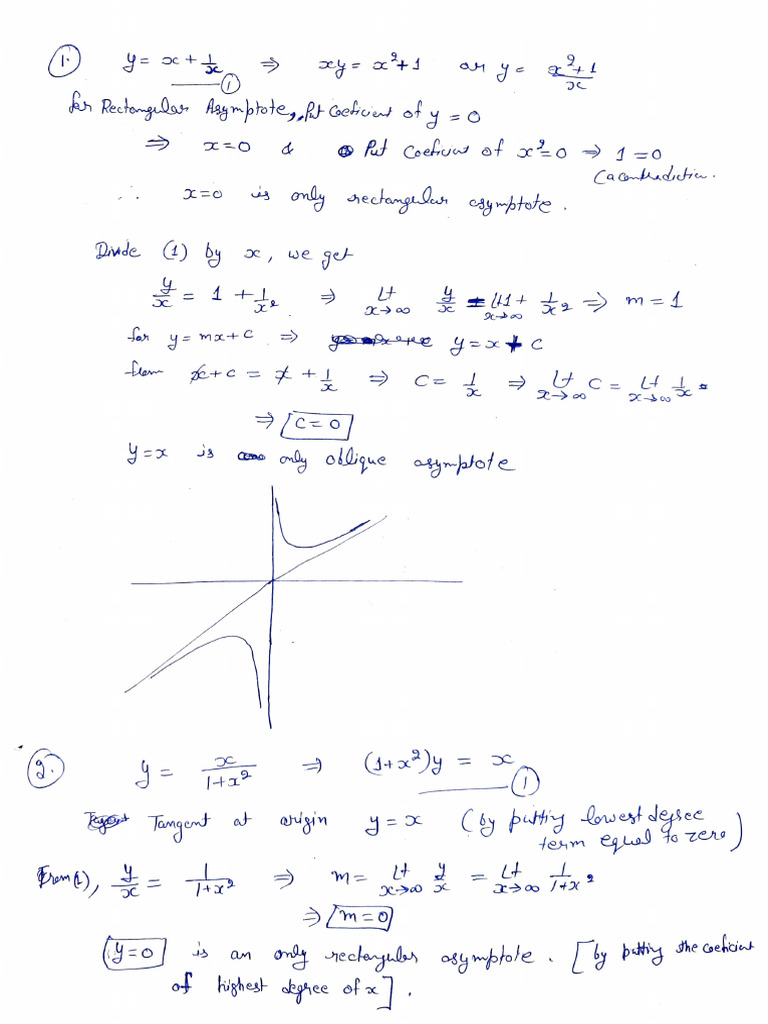 1. y = x + 1/x ⇒ xy = x²+1 or y = x²+1/x
——(1)
for Rectangular Asymptote, Put Coeficient of y = 0
⇒ x=0 & Put Coeficient of x²=0 ⇒ 1=0
(a contradiction.
∴ x=0 is only rectangular asymptote.
Divide (1) by x, we get
y/x = 1 + 1/x² ⇒ Lt x→∞ y/x = Lt x→∞ 1 + 1/x² ⇒ m=1
for y = mx+c ⇒ y = x + c
from x+c = x + 1/x ⇒ c = 1/x ⇒ Lt x→∞ c = Lt x→∞ 1/x
⇒ c=0
y=x is only oblique asymptote
2. y = x/1+x² ⇒ (1+x²)y = x
——(1)
Tangent at origin y=x (by putting lowest degree
term equal to zero)
From (1), y/x = 1/1+x² ⇒ m = Lt x→∞ y/x = Lt x→∞ 1/1+x²
⇒ m=0
y=0 is an only rectangular asymptote. [by putting the coeficient
of highest degree of x].